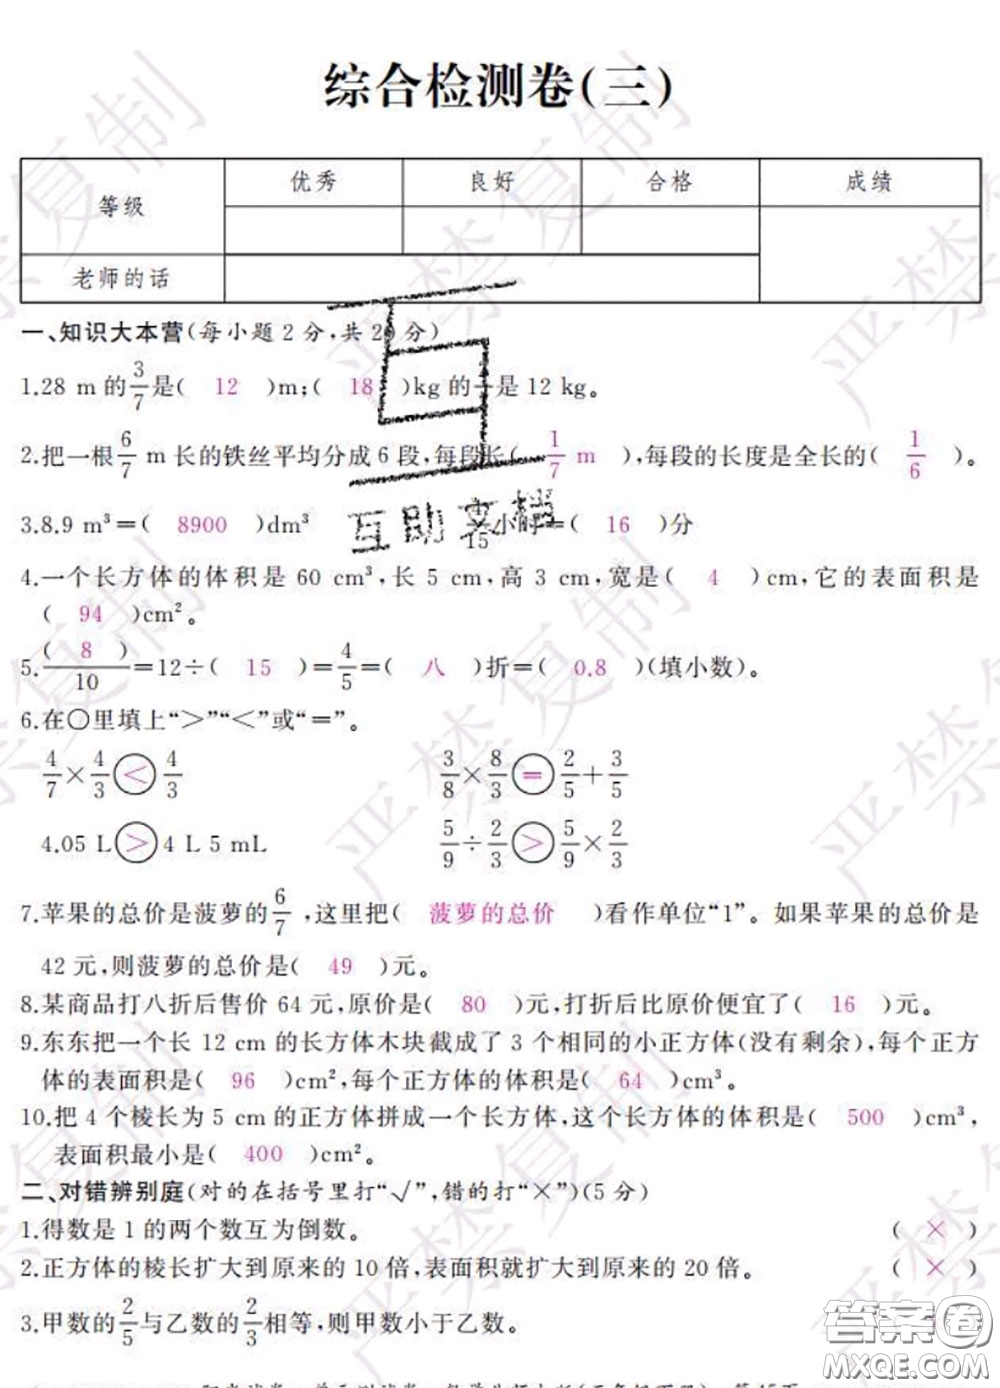 综合检测卷(三)
等级 优秀 良好 合格 成绩
老师的话
一、知识大本营(每小题2分,共20分)
1.28 m的3/7是( 12 )m;( 18 )kg的 是12 kg。
2.把一根6/7 m长的铁丝平均分成6段,每段长( 1/7 m ),每段的长度是全长的( 1/6 )。
3.8.9 m³=( 8900 )dm³ 4/15小时=( 16 )分
4.一个长方体的体积是60 cm³,长5 cm,高3 cm,宽是( 4 )cm,它的表面积是
( 94 )cm²。
5.( 8 )/10=12÷( 15 )=4/5=( 八 )折=( 0.8 )(填小数)。
6.在○里填上“>”“<”或“=”。
4/7×4/3<4/3 3/8×8/3=2/5+3/5
4.05 L>4 L 5 mL 5/9÷2/3>5/9×2/3
7.苹果的总价是菠萝的6/7,这里把( 菠萝的总价 )看作单位“1”。如果苹果的总价是
42元,则菠萝的总价是( 49 )元。
8.某商品打八折后售价64元,原价是( 80 )元,打折后比原价便宜了( 16 )元。
9.东东把一个长12 cm的长方体木块截成了3个相同的小正方体(没有剩余),每个正方
体的表面积是( 96 )cm²,每个正方体的体积是( 64 )cm³。
10.把4个棱长为5 cm的正方体拼成一个长方体,这个长方体的体积是( 500 )cm³,
表面积最小是( 400 )cm²。
二、对错辨别庭(对的在括号里打“√”,错的打“×”)(5分)
1.得数是1的两个数互为倒数。 ( × )
2.正方体的棱长扩大到原来的10倍,表面积就扩大到原来的20倍。 ( × )
3.甲数的2/5与乙数的2/3相等,则甲数小于乙数。
互助文档
严禁复制
答案圈
MXQE.COM